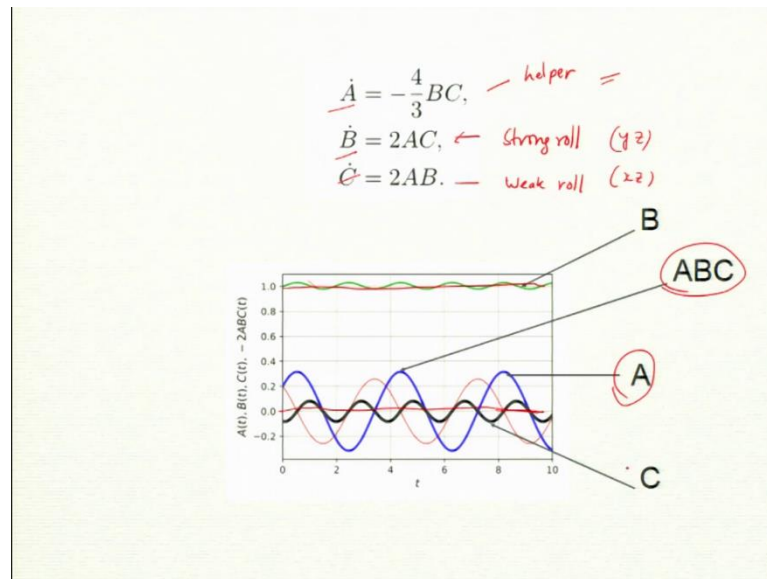 Ȧ = -4/3 BC, — helper =
Ḃ = 2AC, ← Strong roll (yz)
Ċ = 2AB. — weak roll (xz)
B
ABC
A
C
A(t), B(t), C(t), − 2ABC(t)
1.0
0.8
0.6
0.4
0.2
0.0
−0.2
0 2 4 6 8 10
t